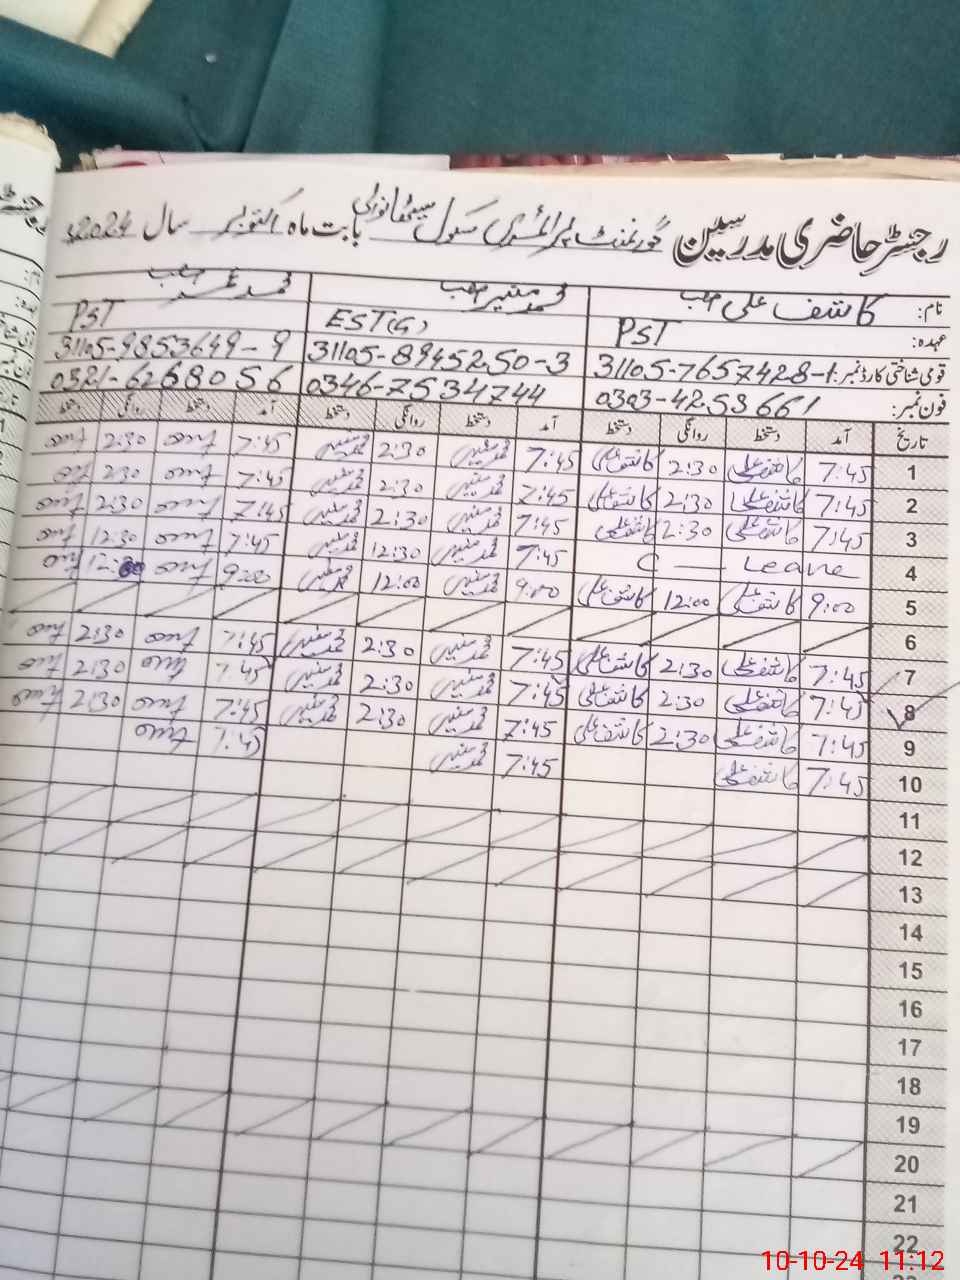 رجسٹر حاضری مدرسین گورنمنٹ پرائمری سکول بابت ماہ اکتوبر سال 2024ء
نام: کاشف علی صاحب محمد منیر صاحب محمد عمر صاحب
عہدہ: PST EST(G) PST
قومی شناختی کارڈ نمبر: 31105-7657428-1 31105-8945250-3 31105-9853649-9
فون نمبر: 0303-4253661 0346-7534744 0321-6268056
تاریخ آمد دستخط روانگی دستخط آمد دستخط روانگی دستخط آمد دستخط روانگی دستخط
1 7:45 کاشف علی 2:30 کاشف علی 7:45 محمد منیر 2:30 محمد منیر 7:45 2:30
2 7:45 کاشف علی 2:30 کاشف علی 7:45 محمد منیر 2:30 محمد منیر 7:45 2:30
3 7:45 کاشف علی 2:30 کاشف علی 7:45 محمد منیر 2:30 محمد منیر 7:45 2:30
4 C — Leave 7:45 محمد منیر 12:30 محمد منیر 7:45 12:30
5 9:00 کاشف علی 12:00 کاشف علی 9:00 محمد منیر 12:00 محمد منیر 9:00 12:00
6
7 7:45 کاشف علی 2:30 کاشف علی 7:45 محمد منیر 2:30 محمد منیر 7:45 2:30
8 7:45 کاشف علی 2:30 کاشف علی 7:45 محمد منیر 2:30 محمد منیر 7:45 2:30
9 7:45 کاشف علی 2:30 کاشف علی 7:45 محمد منیر 2:30 محمد منیر 7:45 2:30
10 7:45 کاشف علی 7:45 محمد منیر 7:45
11
12
13
14
15
16
17
18
19
20
21
22
10-10-24 11:12